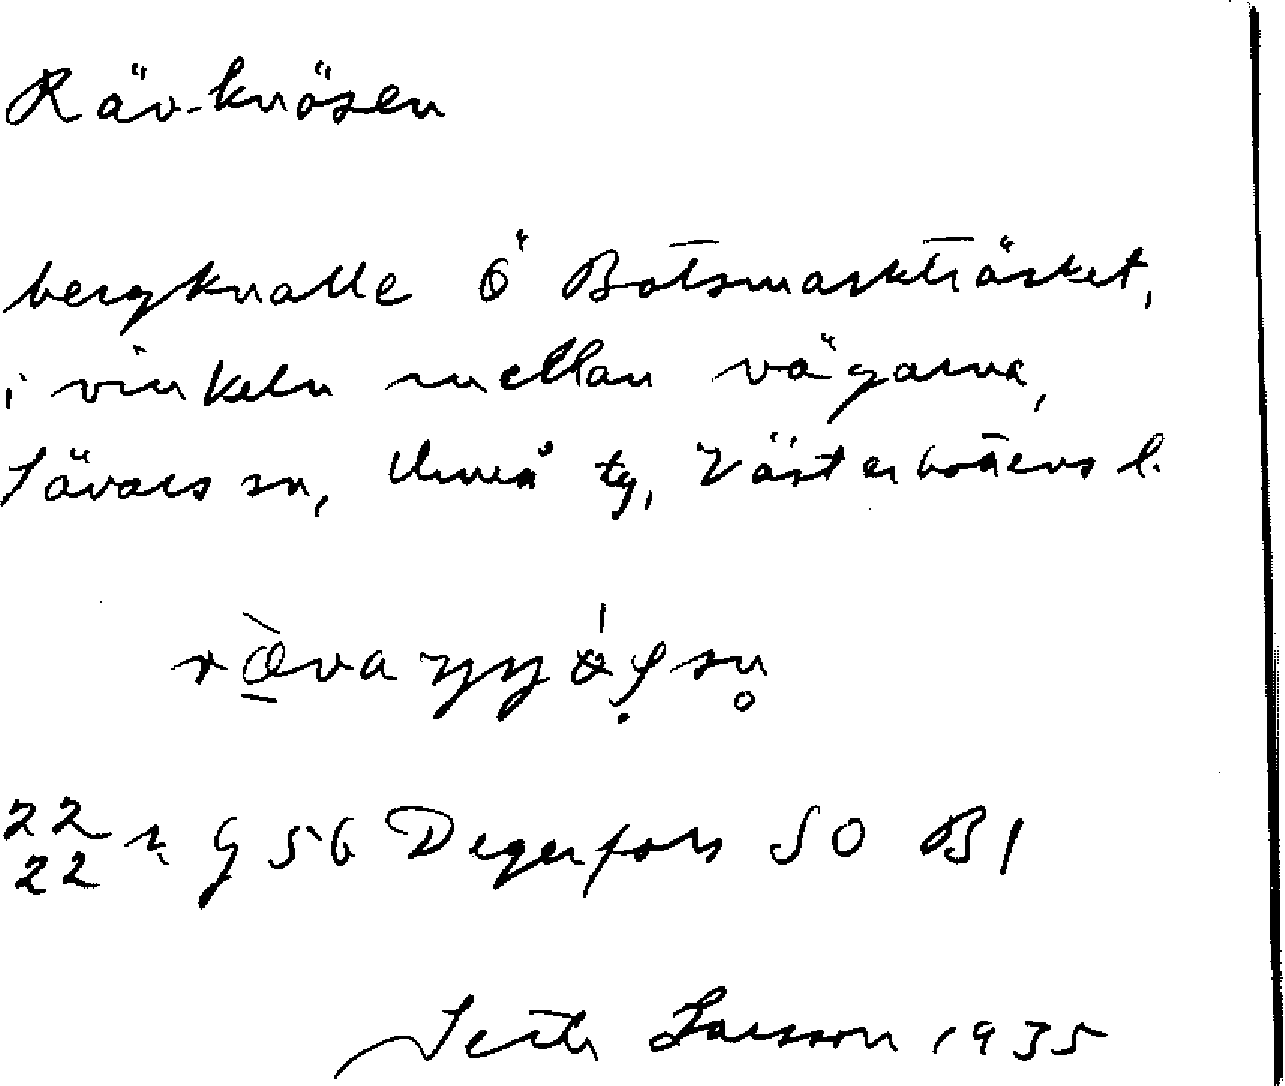 Räv-knösen
bergknalle Ö Botsmarkträsket,
i vinkeln mellan vägarna,
Sävars sn, Umeå tg, Västerbottens l.
22
22 G 56 Degerfors SO B1
Seth Larsson 1935